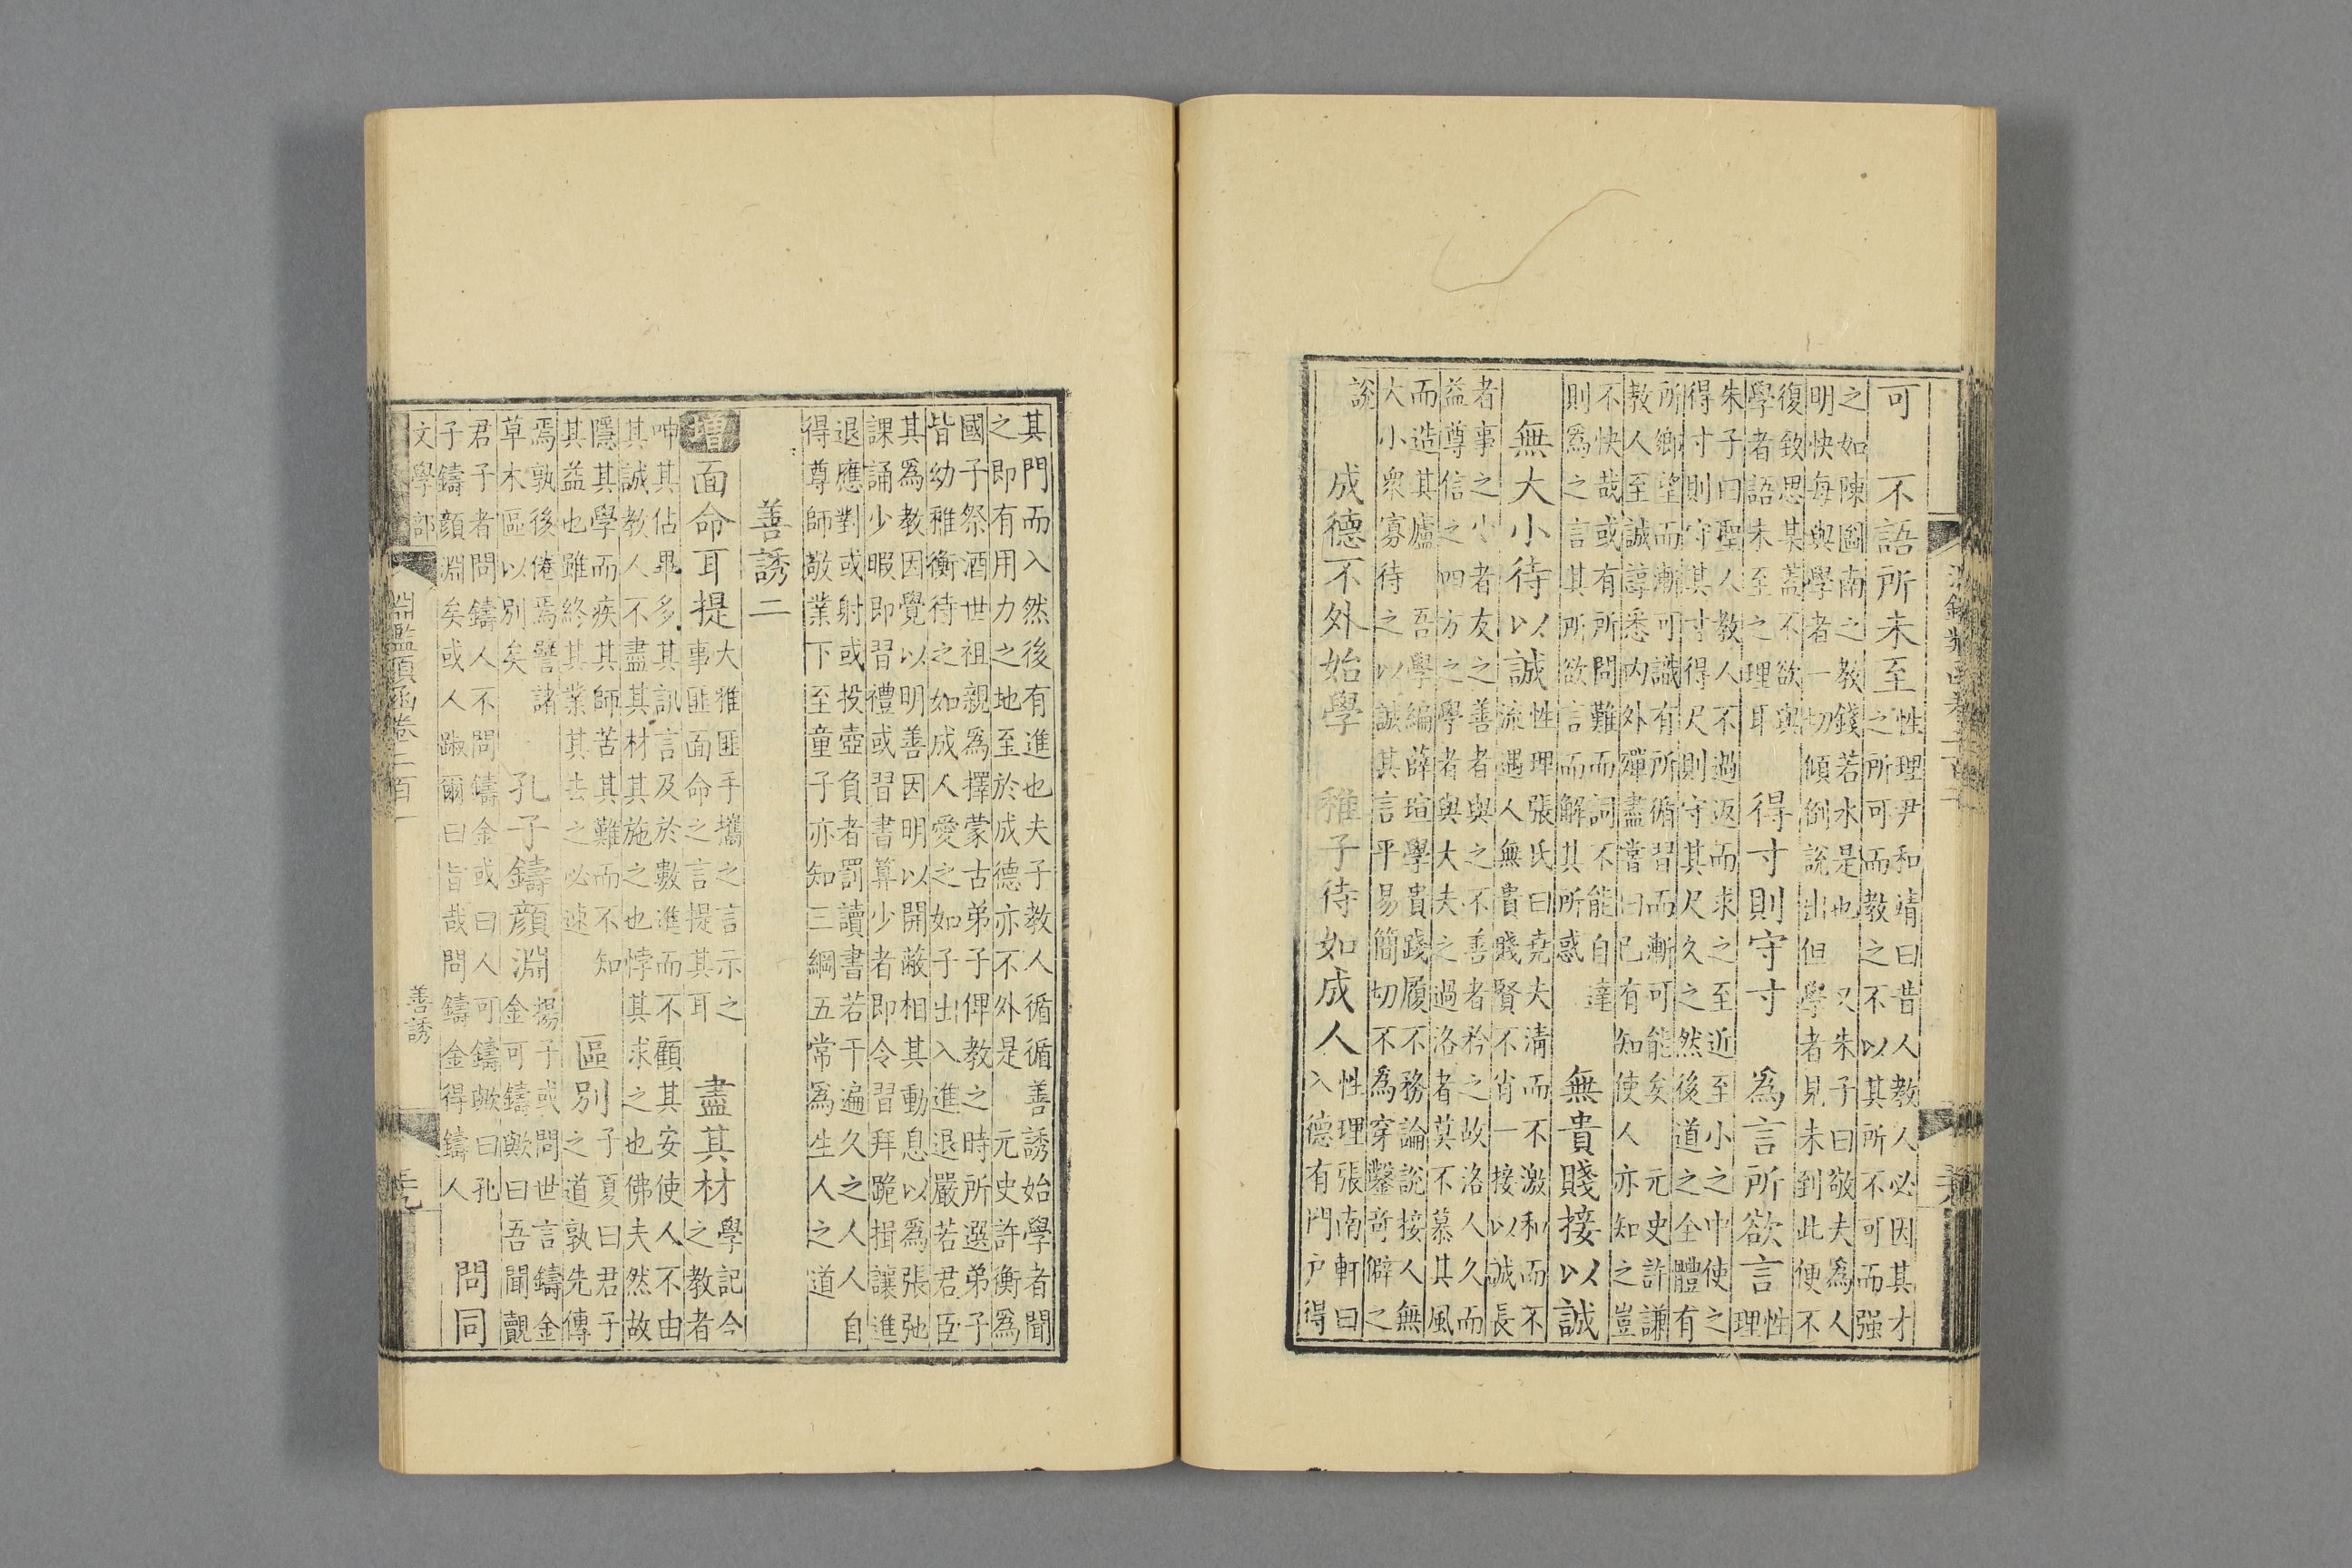 可　不語所未至
性理尹和靖曰昔人教人必因其才
之所可而教之不以其所不可而强
之如陳圖南之教錢若水是也　又朱子曰敬夫為人
明快每與學者一切傾倒說出但學者見未到此便不
復致思某蓋不欲與
學者語未至之理耳
得寸則守寸　為言所欲言
性
理
朱子曰聖人教人不過返而求之至近至小之中使之
得寸則守其寸得尺則守其尺久之然後道之全體有
所鄉望而漸可識有所循習而漸可能矣　元史許謙
教人至誠諄悉內外殫盡嘗曰己有知使人亦知之豈
不快哉或有所問難而詞不能自達
則為之言其所欲言而解其所惑
無貴賤接以誠
無大小待以誠
性理張氏曰堯夫清而不激和而不
流遇人無貴賤賢不肖一接以誠長
者事之少者友之善者與之不善者矜之故洛人久而
益尊信之四方之學者與大夫之過洛者莫不慕其風
而造其廬　吾學編薛瑄學貴踐履不務論說接人無
大小眾寡待之以誠其言平易簡切不為穿鑿奇僻之
說
成德不外始學　稚子待如成人
性理張南軒曰
入德有門戶得
其門而入然後有進也夫子教人循循善誘始學者聞
之即有用力之地至於成德亦不外是　元史許衡為
國子祭酒世祖親為擇蒙古弟子俾教之時所選弟子
皆幼稚衡待之如成人愛之如子出入進退嚴若君臣
其為教因覺以明善因明以開蔽相其動息以為張弛
課誦少暇即習禮或習書算少者即令習拜跪揖讓進
退應對或射或投壺負者罰讀書若干遍久之人人自
得尊師敬業下至童子亦知三綱五常為生人之道
善誘二
增　面命耳提
大雅匪手攜之言示之
事匪面命之言提其耳
盡其材
學記今
之教者
呻其佔畢多其訊言及於數進而不顧其安使人不由
其誠教人不盡其材其施之也悖其求之也佛夫然故
隱其學而疾其師苦其難而不知
其益也雖終其業其去之必速
區別
子夏曰君子
之道孰先傳
焉孰後倦焉譬諸
草木區以別矣
孔子鑄顏淵
揚子或問世言鑄金
金可鑄歟曰吾聞覿
君子者問鑄人不問鑄金或曰人可鑄歟曰孔
子鑄顏淵矣或人踧爾曰旨哉問鑄金得鑄人
問同
文學部
淵鑑類函卷二百一
善誘